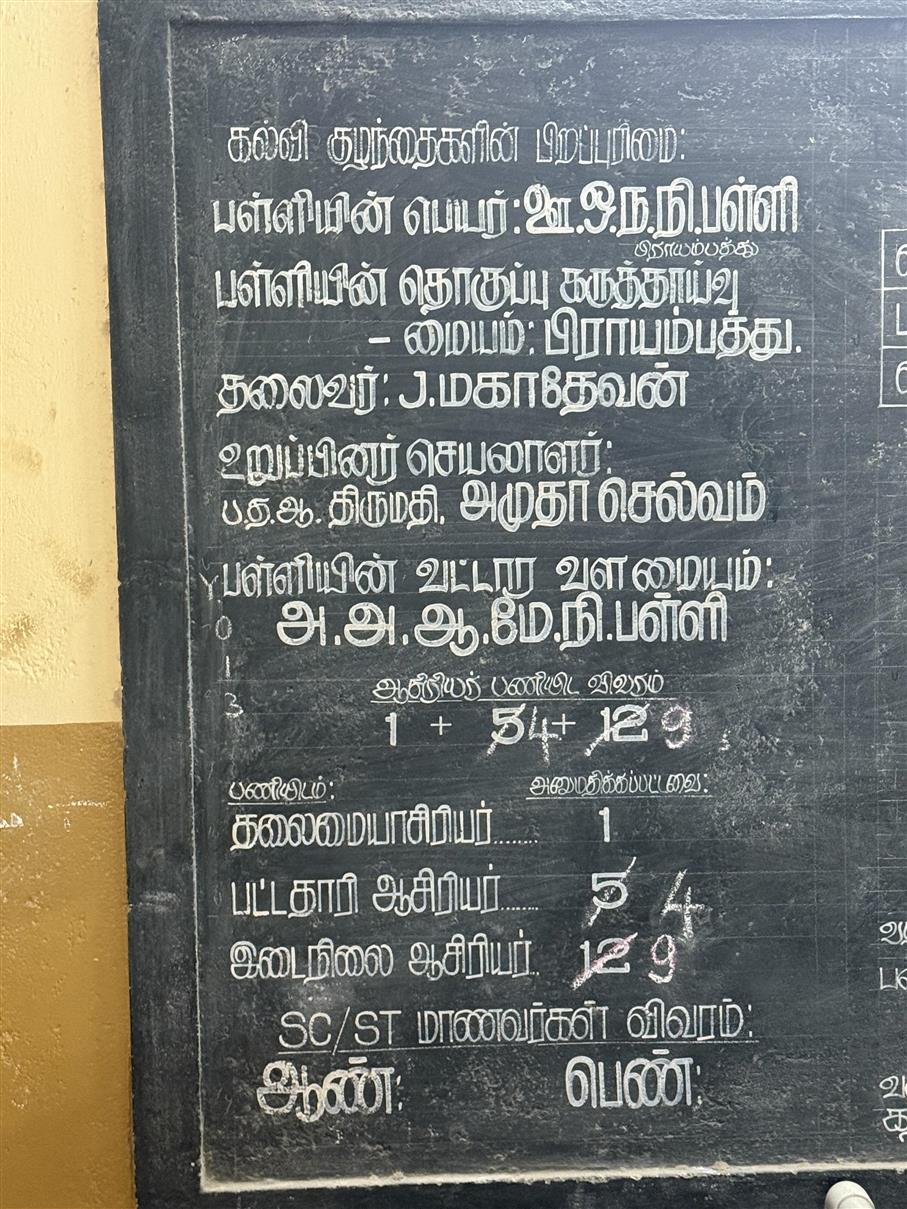 கல்வி குழந்தைகளின் பிறப்புரிமை:
பள்ளியின் பெயர்: ஊ.ஒ.ந.நி.பள்ளி
பிராயம்பத்து
பள்ளியின் தொகுப்பு கருத்தாய்வு
- மையம்: பிராயம்பத்து.
தலைவர்: J.மகாதேவன்
உறுப்பினர் செயலாளர்:
ப.த.ஆ. திருமதி. அமுதா செல்வம்
பள்ளியின் வட்டார வள மையம்:
அ.அ.ஆ.மே.நி.பள்ளி
ஆசிரியர் பணியிட விவரம்
1 + 5 4 + 12 9
பணியிடம்: அனுமதிக்கப்பட்டவை:
தலைமையாசிரியர்........ 1
பட்டதாரி ஆசிரியர்....... 5 4
இடைநிலை ஆசிரியர்.. 12 9
SC/ST மாணவர்கள் விவரம்:
ஆண்: பெண்: